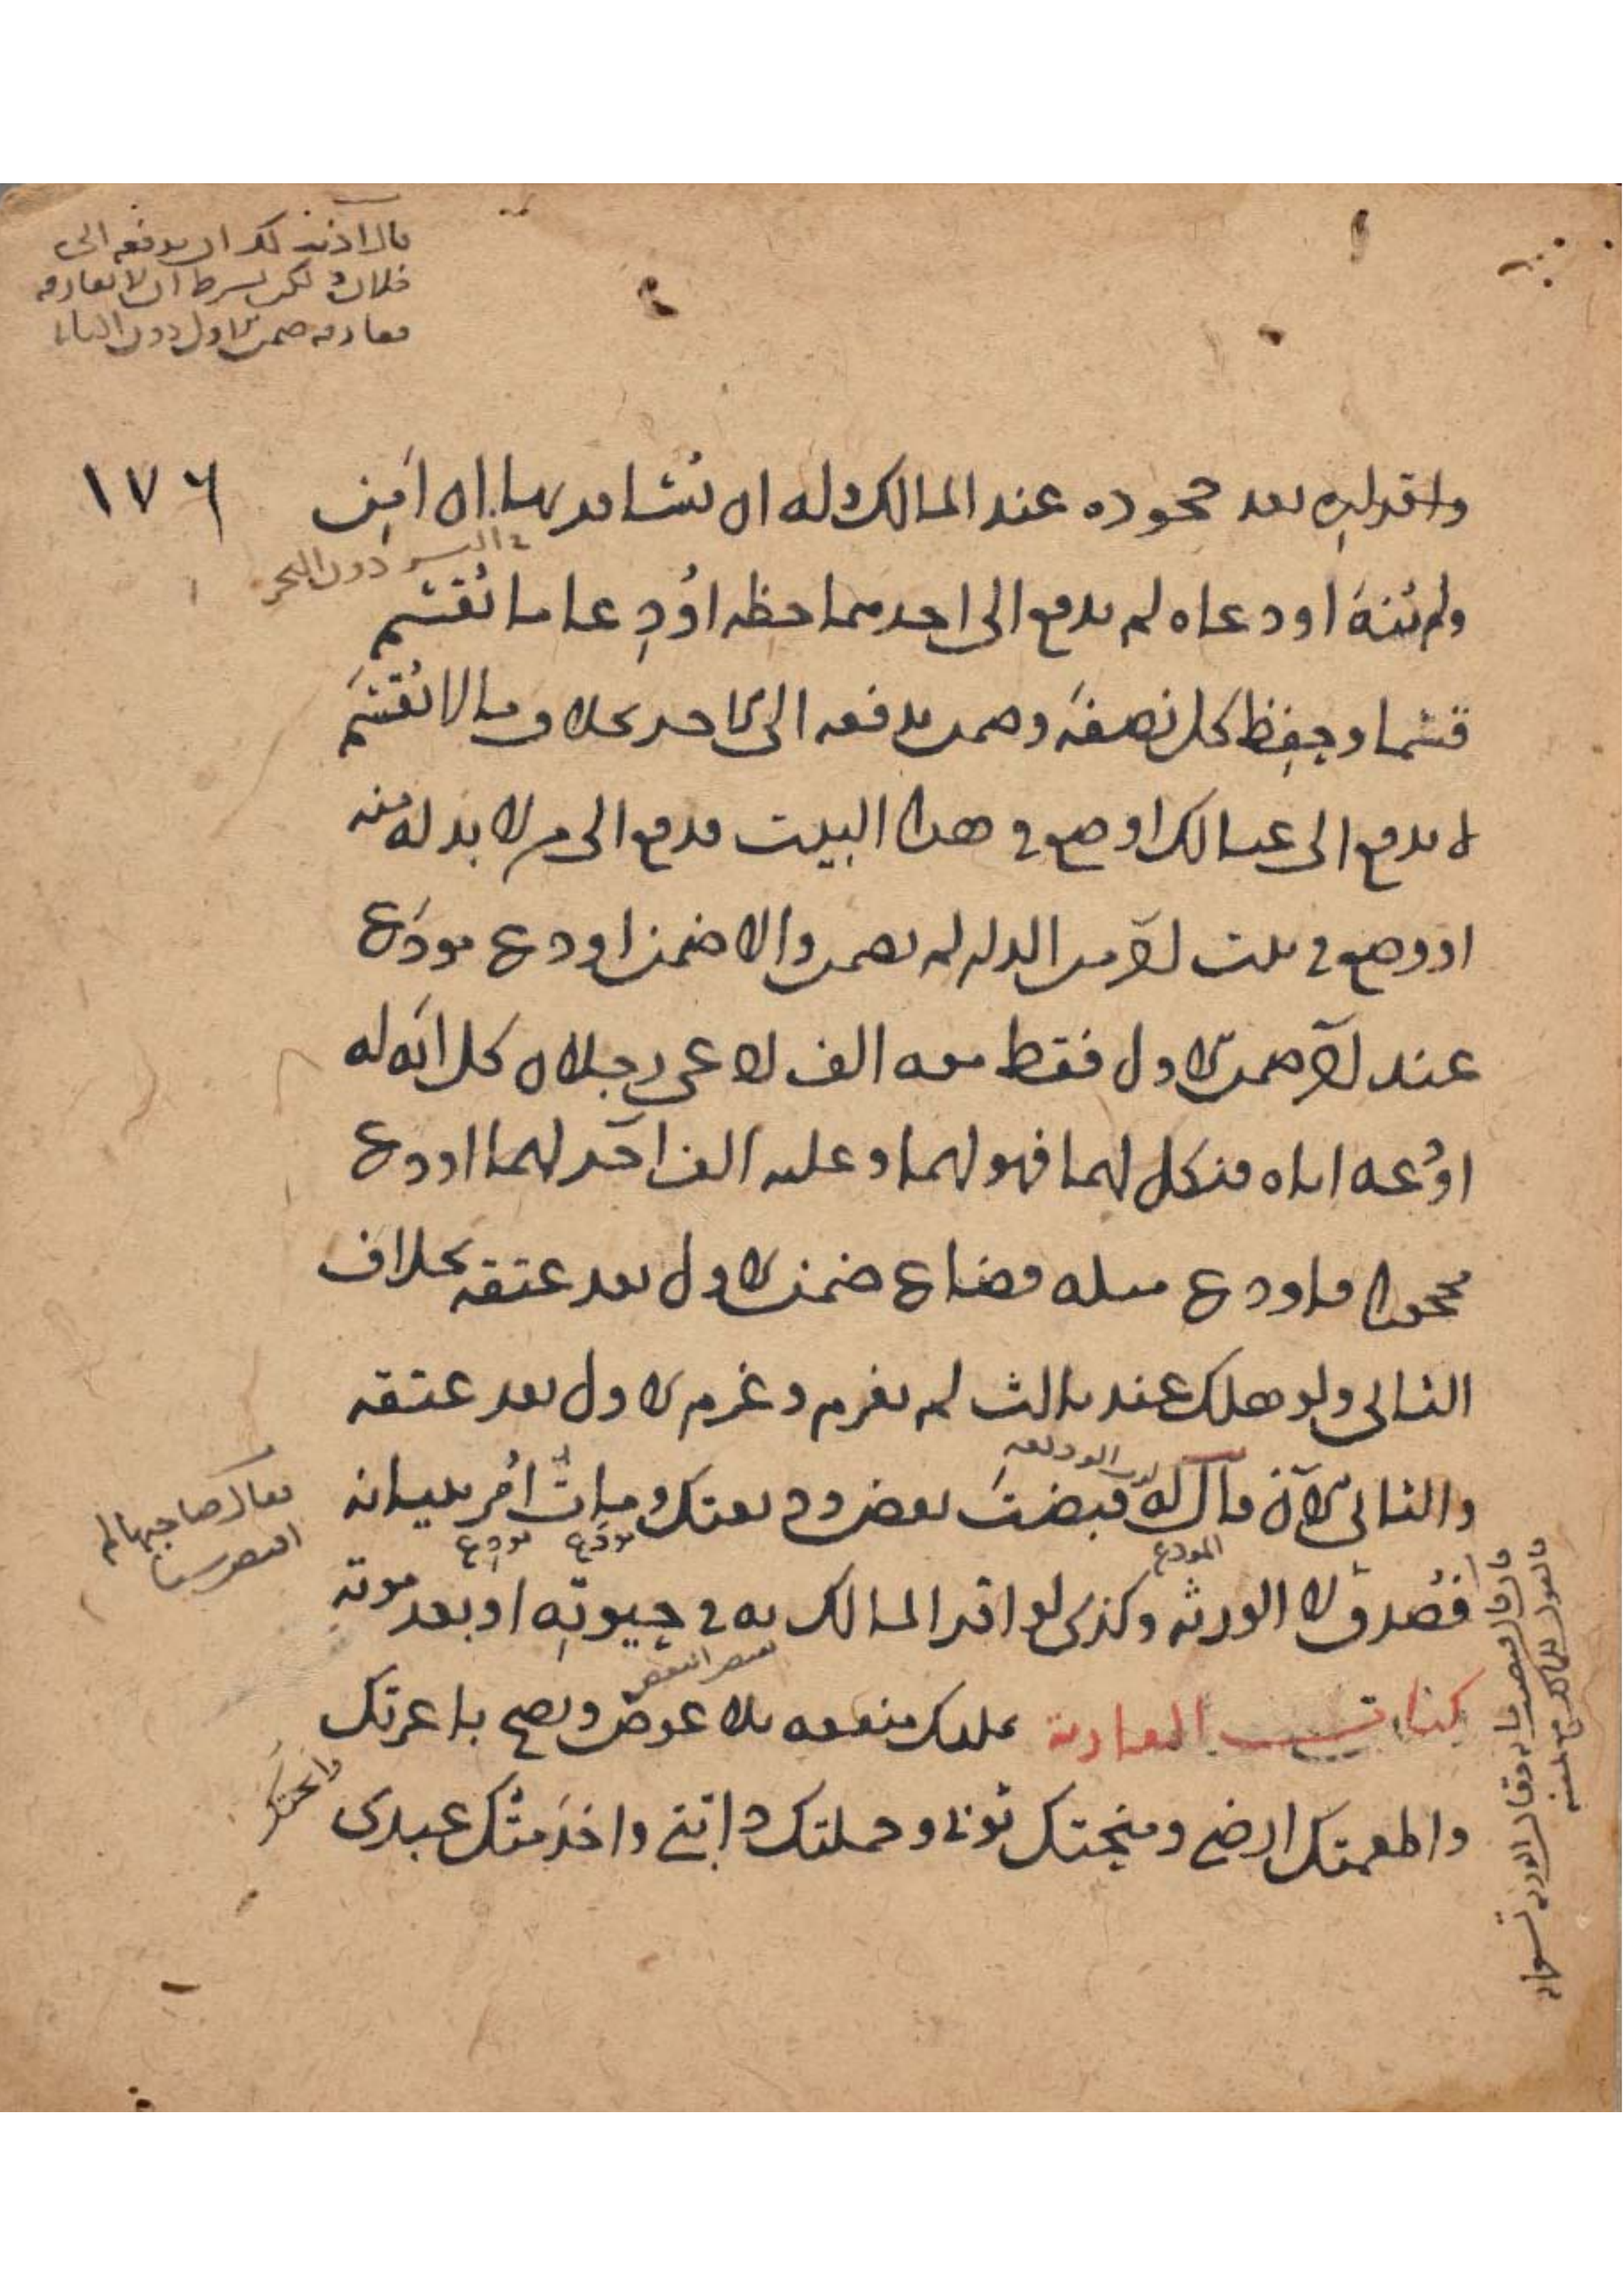 قال اذنت لك ان تدفعه الى
فلان لكن بشرط ان لا تفارقه
ففارقه ضمن الاول دون الثانى
١٧٦
واقراره بعد جحوده عند المالك وله ان يسافر بها ان امن
فى البر دون البحر
ولم ينه اودعاه لم يدفع الى احدهما حظه اودعا ما يقسم
قسما وحفظ كل نصفه وضمن بدفعه الى الاخر بخلاف ما لا يقسم
لا تدفع الى عيالك او ضع فى هذا البيت فدفع الى من لا بد له منه
او وضع فى بيت اخر من الدار لم يضمن والا ضمن اودع مودع
عند اخر ضمن الاول فقط معه الف ادعى رجلان كل انه له
اودعه اياه فنكل لهما فهو لهما وعليه الف اخر لهما اودع
محجورا فاودع مثله فضاع ضمن الاول بعد عتقه بخلاف
الثانى ولو هلك عند ثالث لم يغرم وغرم الاول بعد عتقه
والثانى الان قال له رب الوديعة قبضت بعض وديعتك ومات امر ببيانه
المودع
مودع
مودع
فقال صاحبها لم
اقبض شيئا
فصدق لا الورثه وكذى لو اقر المالك به فى حيوته او بعد موته
بقبض البعض
كتاب العارية تمليك منفعه بلا عوض وتصح باعرتك
واطعمتك ارضى ومنحتك ثوبى وحملتك دابتى واخدمتك عبدى
فالقول للمالك مع يمينه